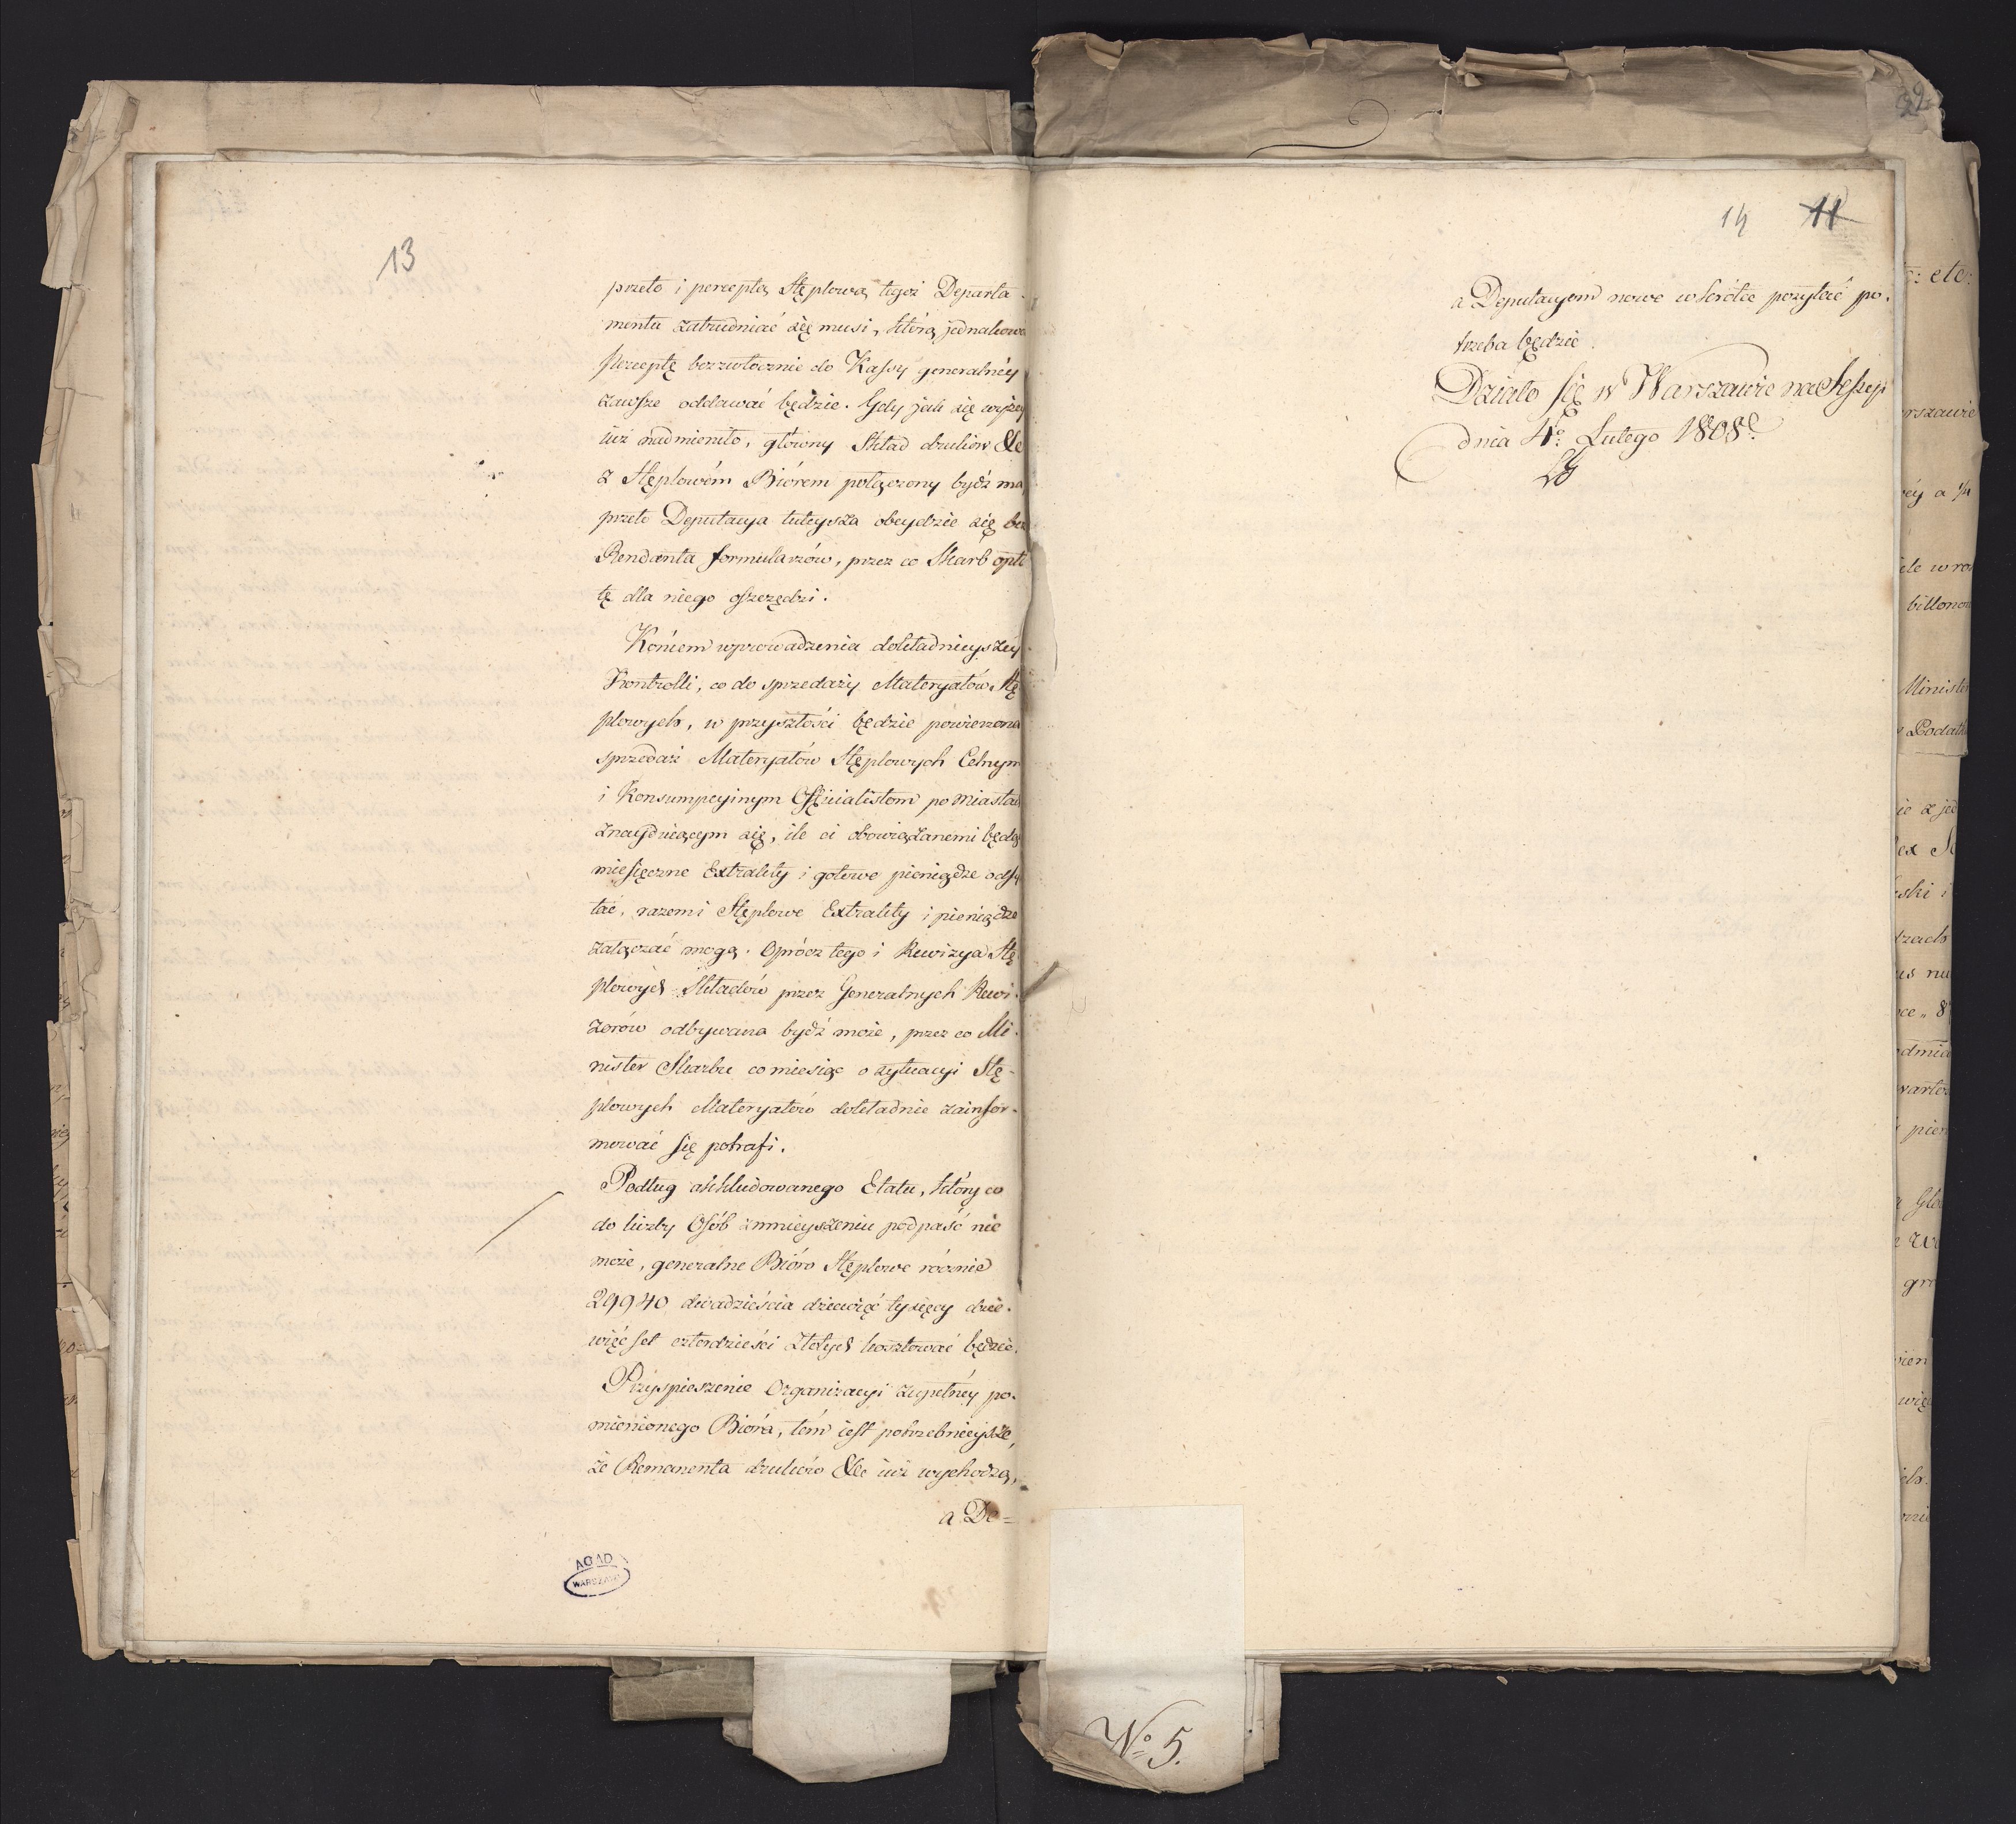 13
przeto i perceptą Stęplową tegoż Departa-
mentu zatrudniać się musi, którą jednakowo
perceptę bezzwłocznie do Kassy generalnéy
zawsze oddawać będzie. Gdy jak się wyżey
iuż nadmieniło, główny Skład druków &c
z Stęplowém Biórem połączony bydź ma,
przeto Deputacya tuteysza obeydzie się bez
Rendanta formularzów, przez co Skarb opła
tę dla niego oszczędzi.
Końcem wprowadzenia dokładnieyszéy
Kontrolli, co do sprzedaży Materyałów Stę
plowych, w przyszłości będzie powierzona
sprzedaż Materyałów Stęplowych Celnym
i Konsumpcyinym Officialistom po Miastach
znayduiącym się, ile ci obowiązanemi będąc
miesięczne Extrakty i gotowe pieniądze odsy
łać, razem i Stęplowe Extrakty i pieniądze
załączać mogą. Oprócz tego i Rewizya Stę
plowych Składów przez Generalnych Rewi-
zorów odbywana bydź może, przez co Mi-
nister Skarbu co miesiąc o sytuacyi Stę-
plowych Materyałów dokładnie zainfor-
mować się potrafi.
Podług akkludowanego Etatu, który co
do liczby Osób zmnieyszeniu podpaść nie
może, generalne Bióro Stęplowe rócznie
29940 dwadzieścia dziewięć tysięcy dzie-
więćset czterdzieści Złotych kosztować będzie.
Przyspieszenie Organizacyi zupełnéy po-
mienionego Bióra, tém iest potrzebnieysze,
że Remanenta druków &c iuż wychodzą,
a De=
AGAD
WARSZAWA
14 11
a Deputacyom nowe wkrótce pozyłać po-
trzeba będzie.
Działo się w Warszawie na Sessyi
dnia 4o Lutego 1808
No 5.